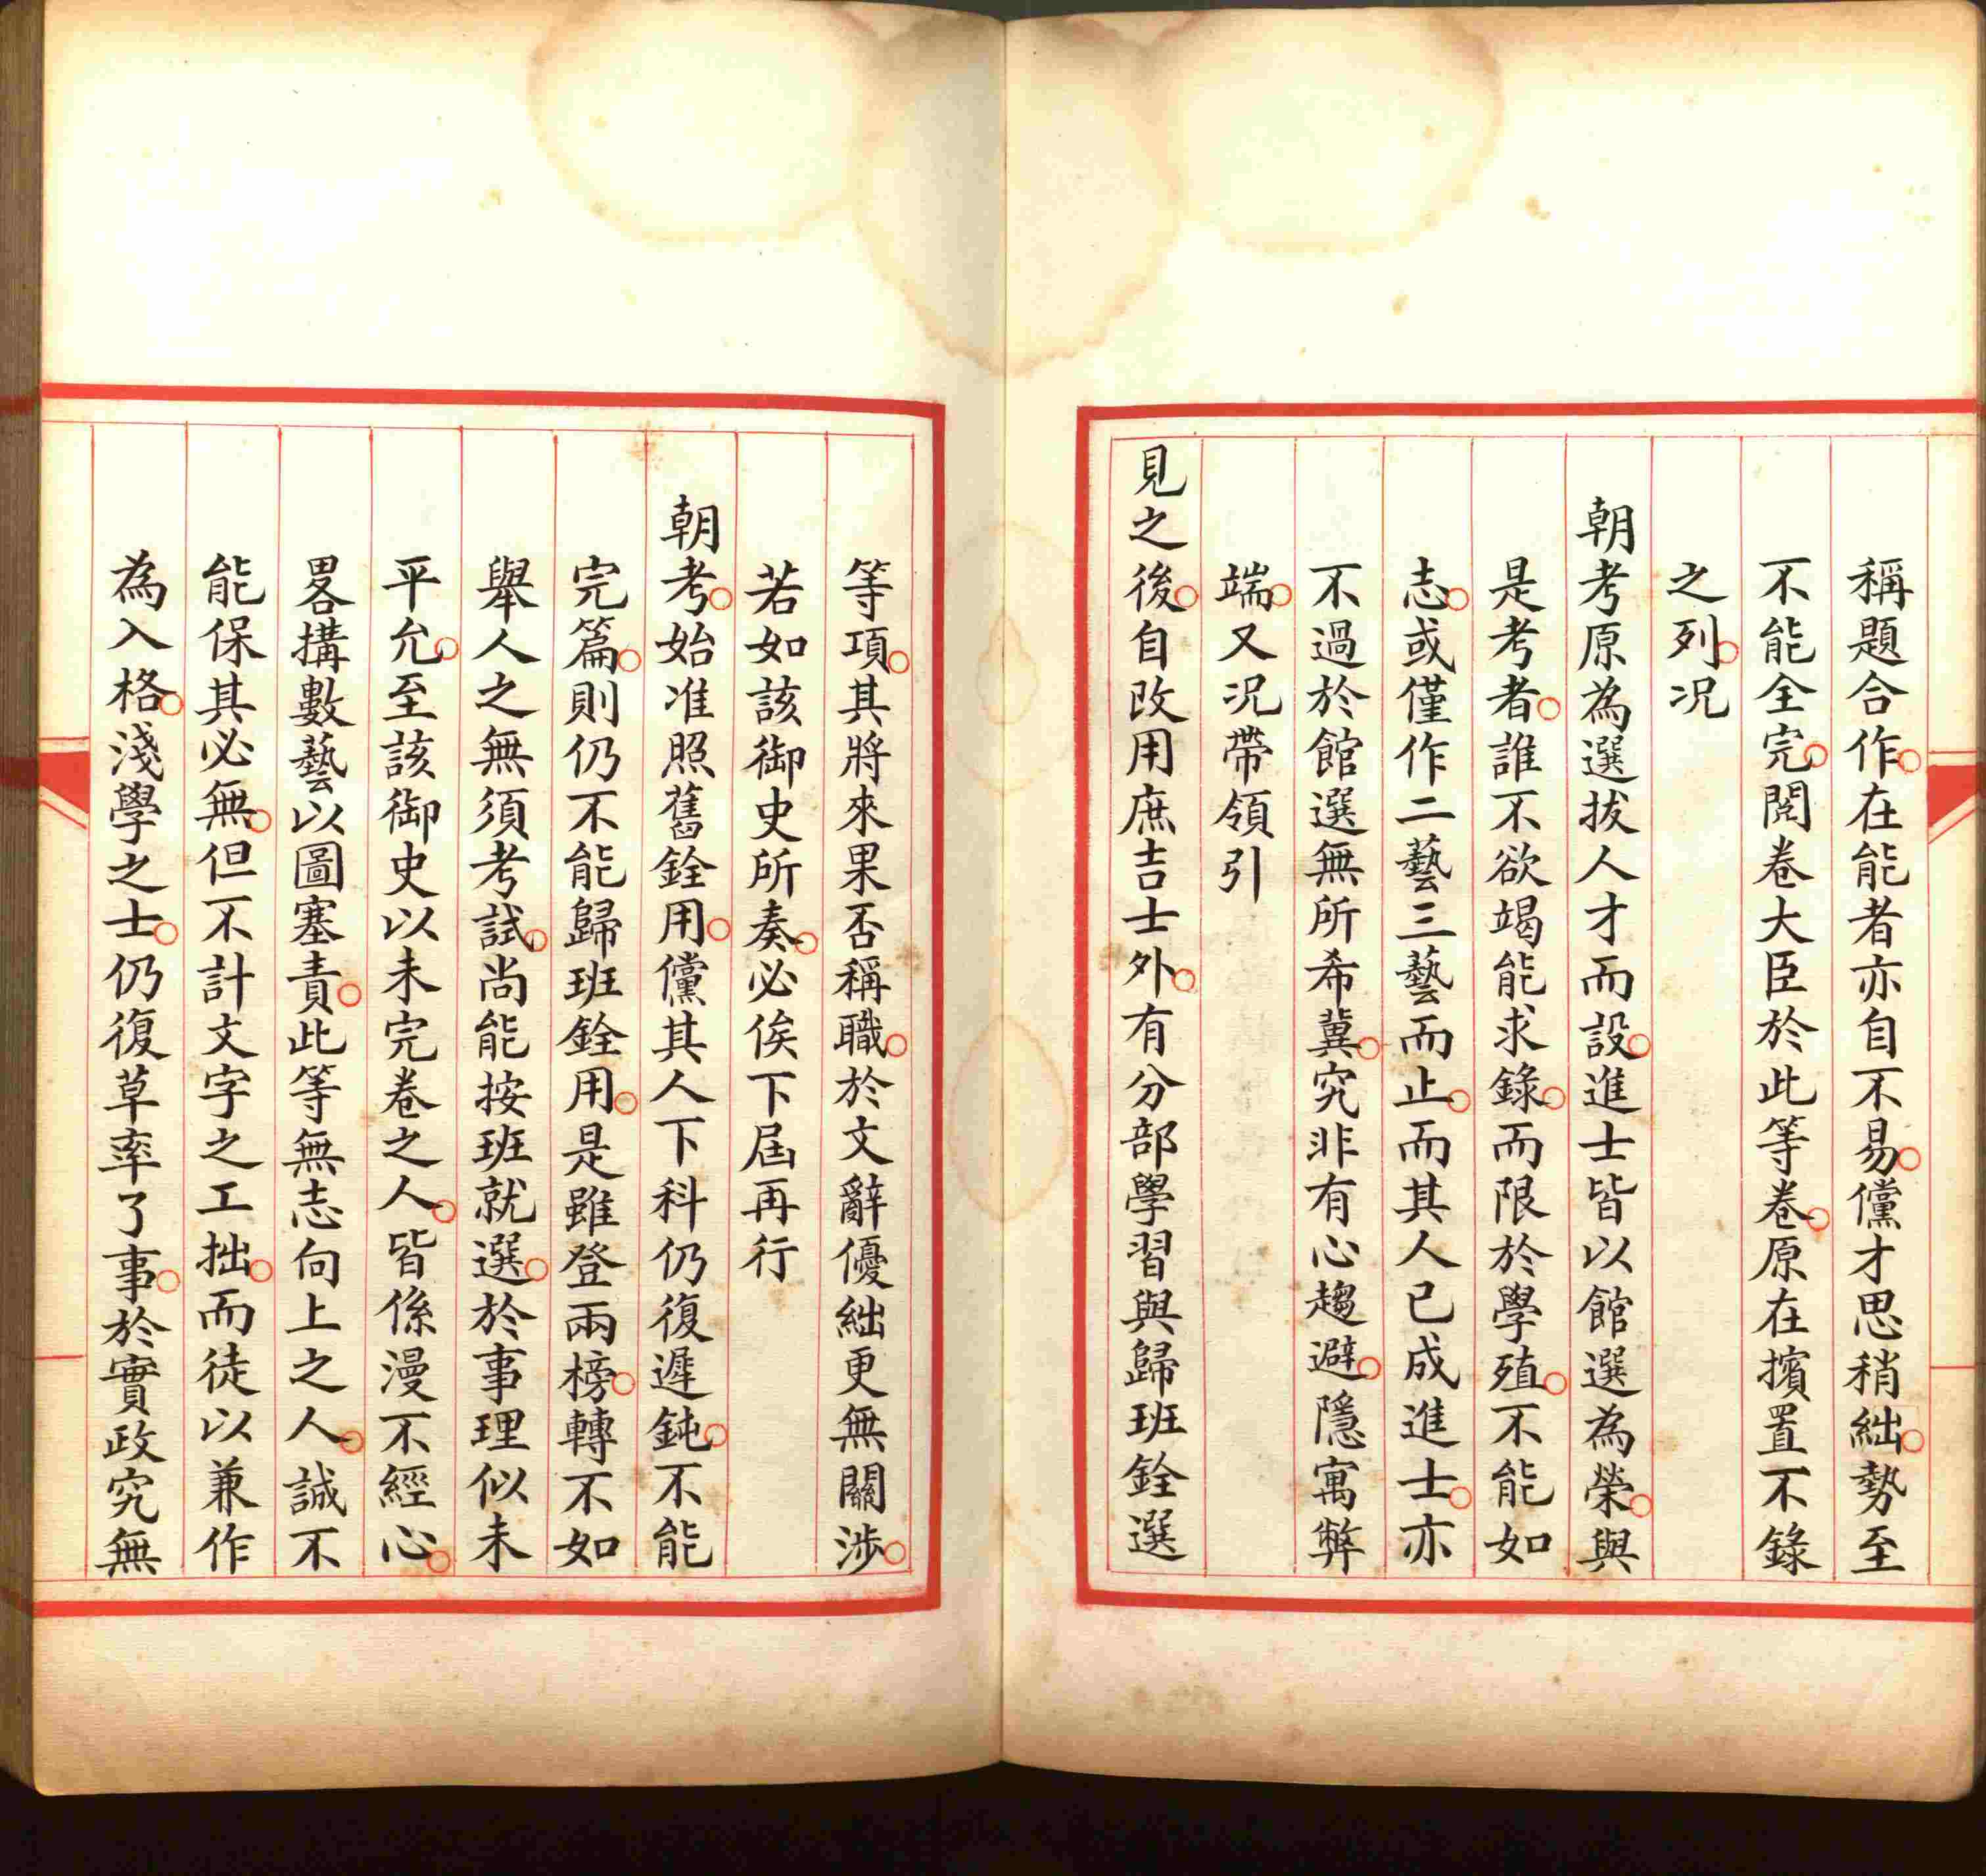 稱題合作○在能者亦自不易○儻才思稍絀○勢至
不能全完○閱卷大臣於此等卷○原在擯置不錄
之列○况
朝考原為選拔人才而設○進士皆以館選為榮○與
是考者○誰不欲竭能求錄○而限於學殖○不能如
志○或僅作二藝三藝而止○而其人已成進士○亦
不過於館選無所希冀○究非有心趨避○隱寓弊
端○又况帶領引
見之後○自改用庶吉士外○有分部學習與歸班銓選
等項○其將來果否稱職○於文辭優絀更無關涉○
若如該御史所奏○必俟下屆再行
朝考○始准照舊銓用○儻其人下科仍復遲鈍○不能
完篇○則仍不能歸班銓用○是雖登兩榜○轉不如
舉人之無須考試○尚能按班就選○於事理似未
平允○至該御史以未完卷之人○皆係漫不經心○
畧搆數藝以圖塞責○此等無志向上之人○誠不
能保其必無○但不計文字之工拙○而徒以兼作
為入格○淺學之士○仍復草率了事○於實政究無